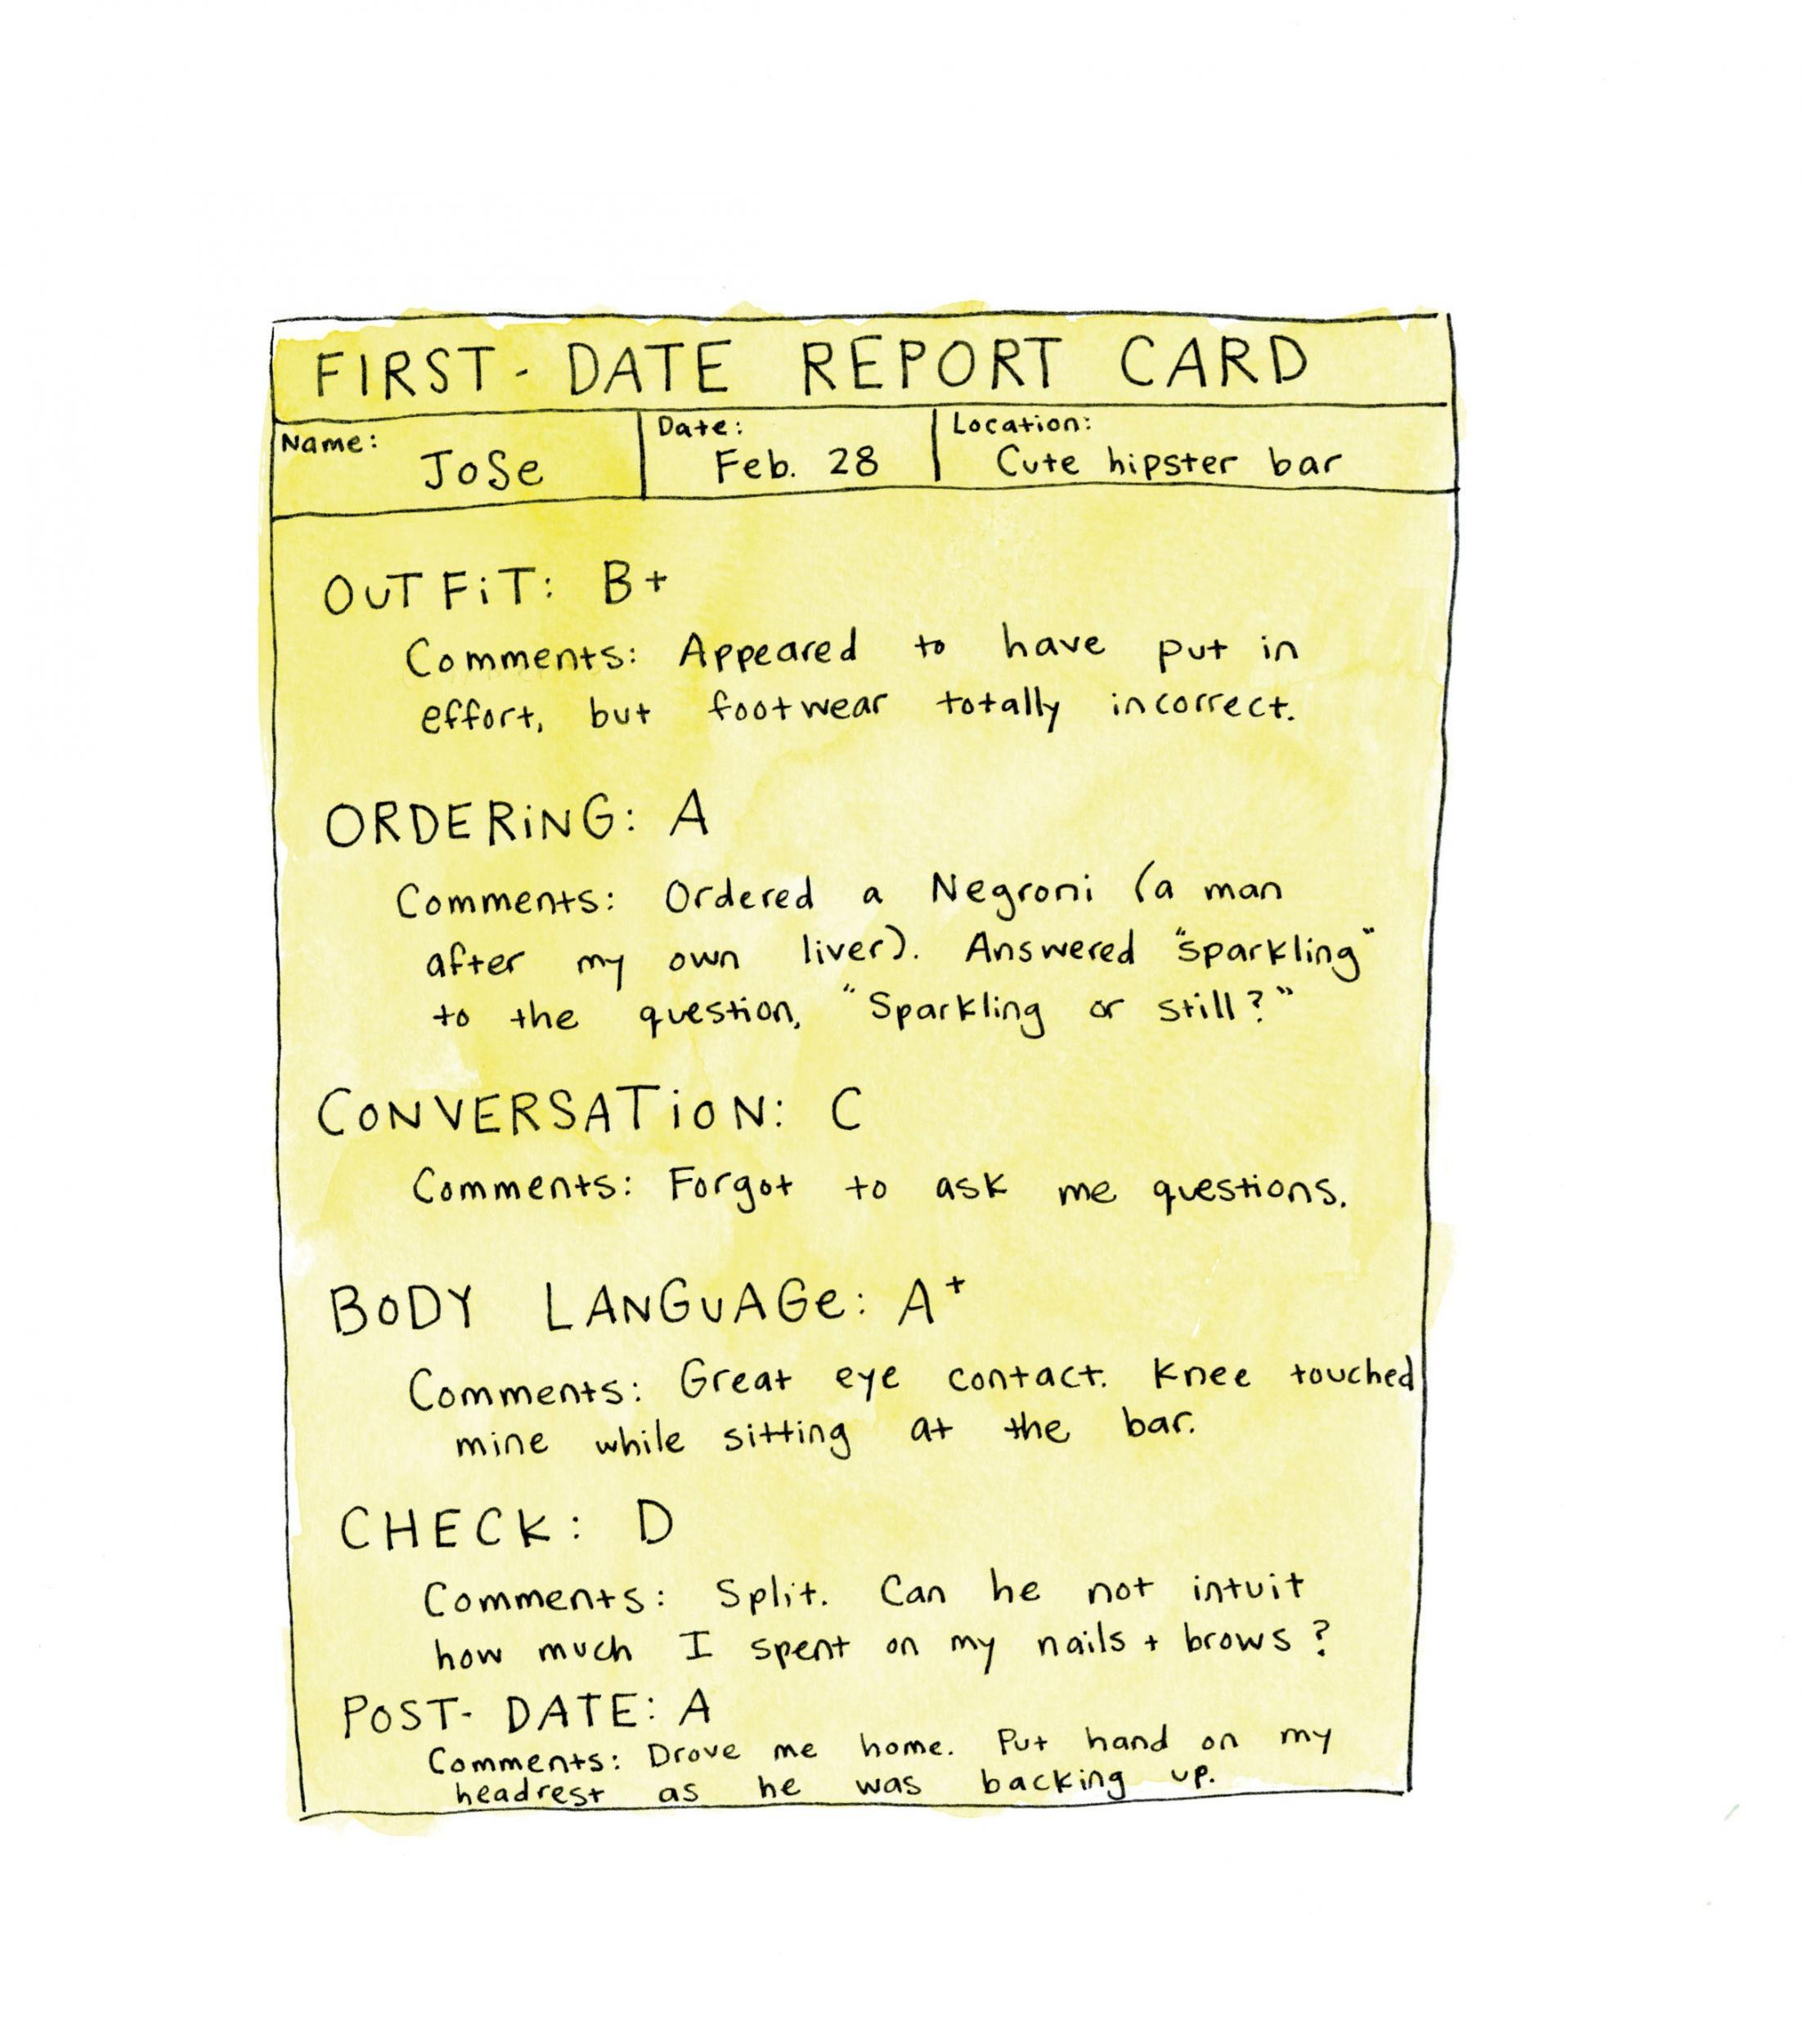 FIRST-DATE REPORT CARD
Name: JoSe
Date: Feb. 28
Location: Cute hipster bar
OUTFiT: B+
Comments: Appeared to have put in
effort, but footwear totally incorrect.
ORDERiNG: A
Comments: Ordered a Negroni (a man
after my own liver). Answered "sparkling"
to the question, "Sparkling or still?"
CONVERSATiON: C
Comments: Forgot to ask me questions.
BODY LANGUAGe: A+
Comments: Great eye contact. Knee touched
mine while sitting at the bar.
CHECK: D
Comments: Split. Can he not intuit
how much I spent on my nails + brows?
POST-DATE: A
Comments: Drove me home. Put hand on my
headrest as he was backing up.